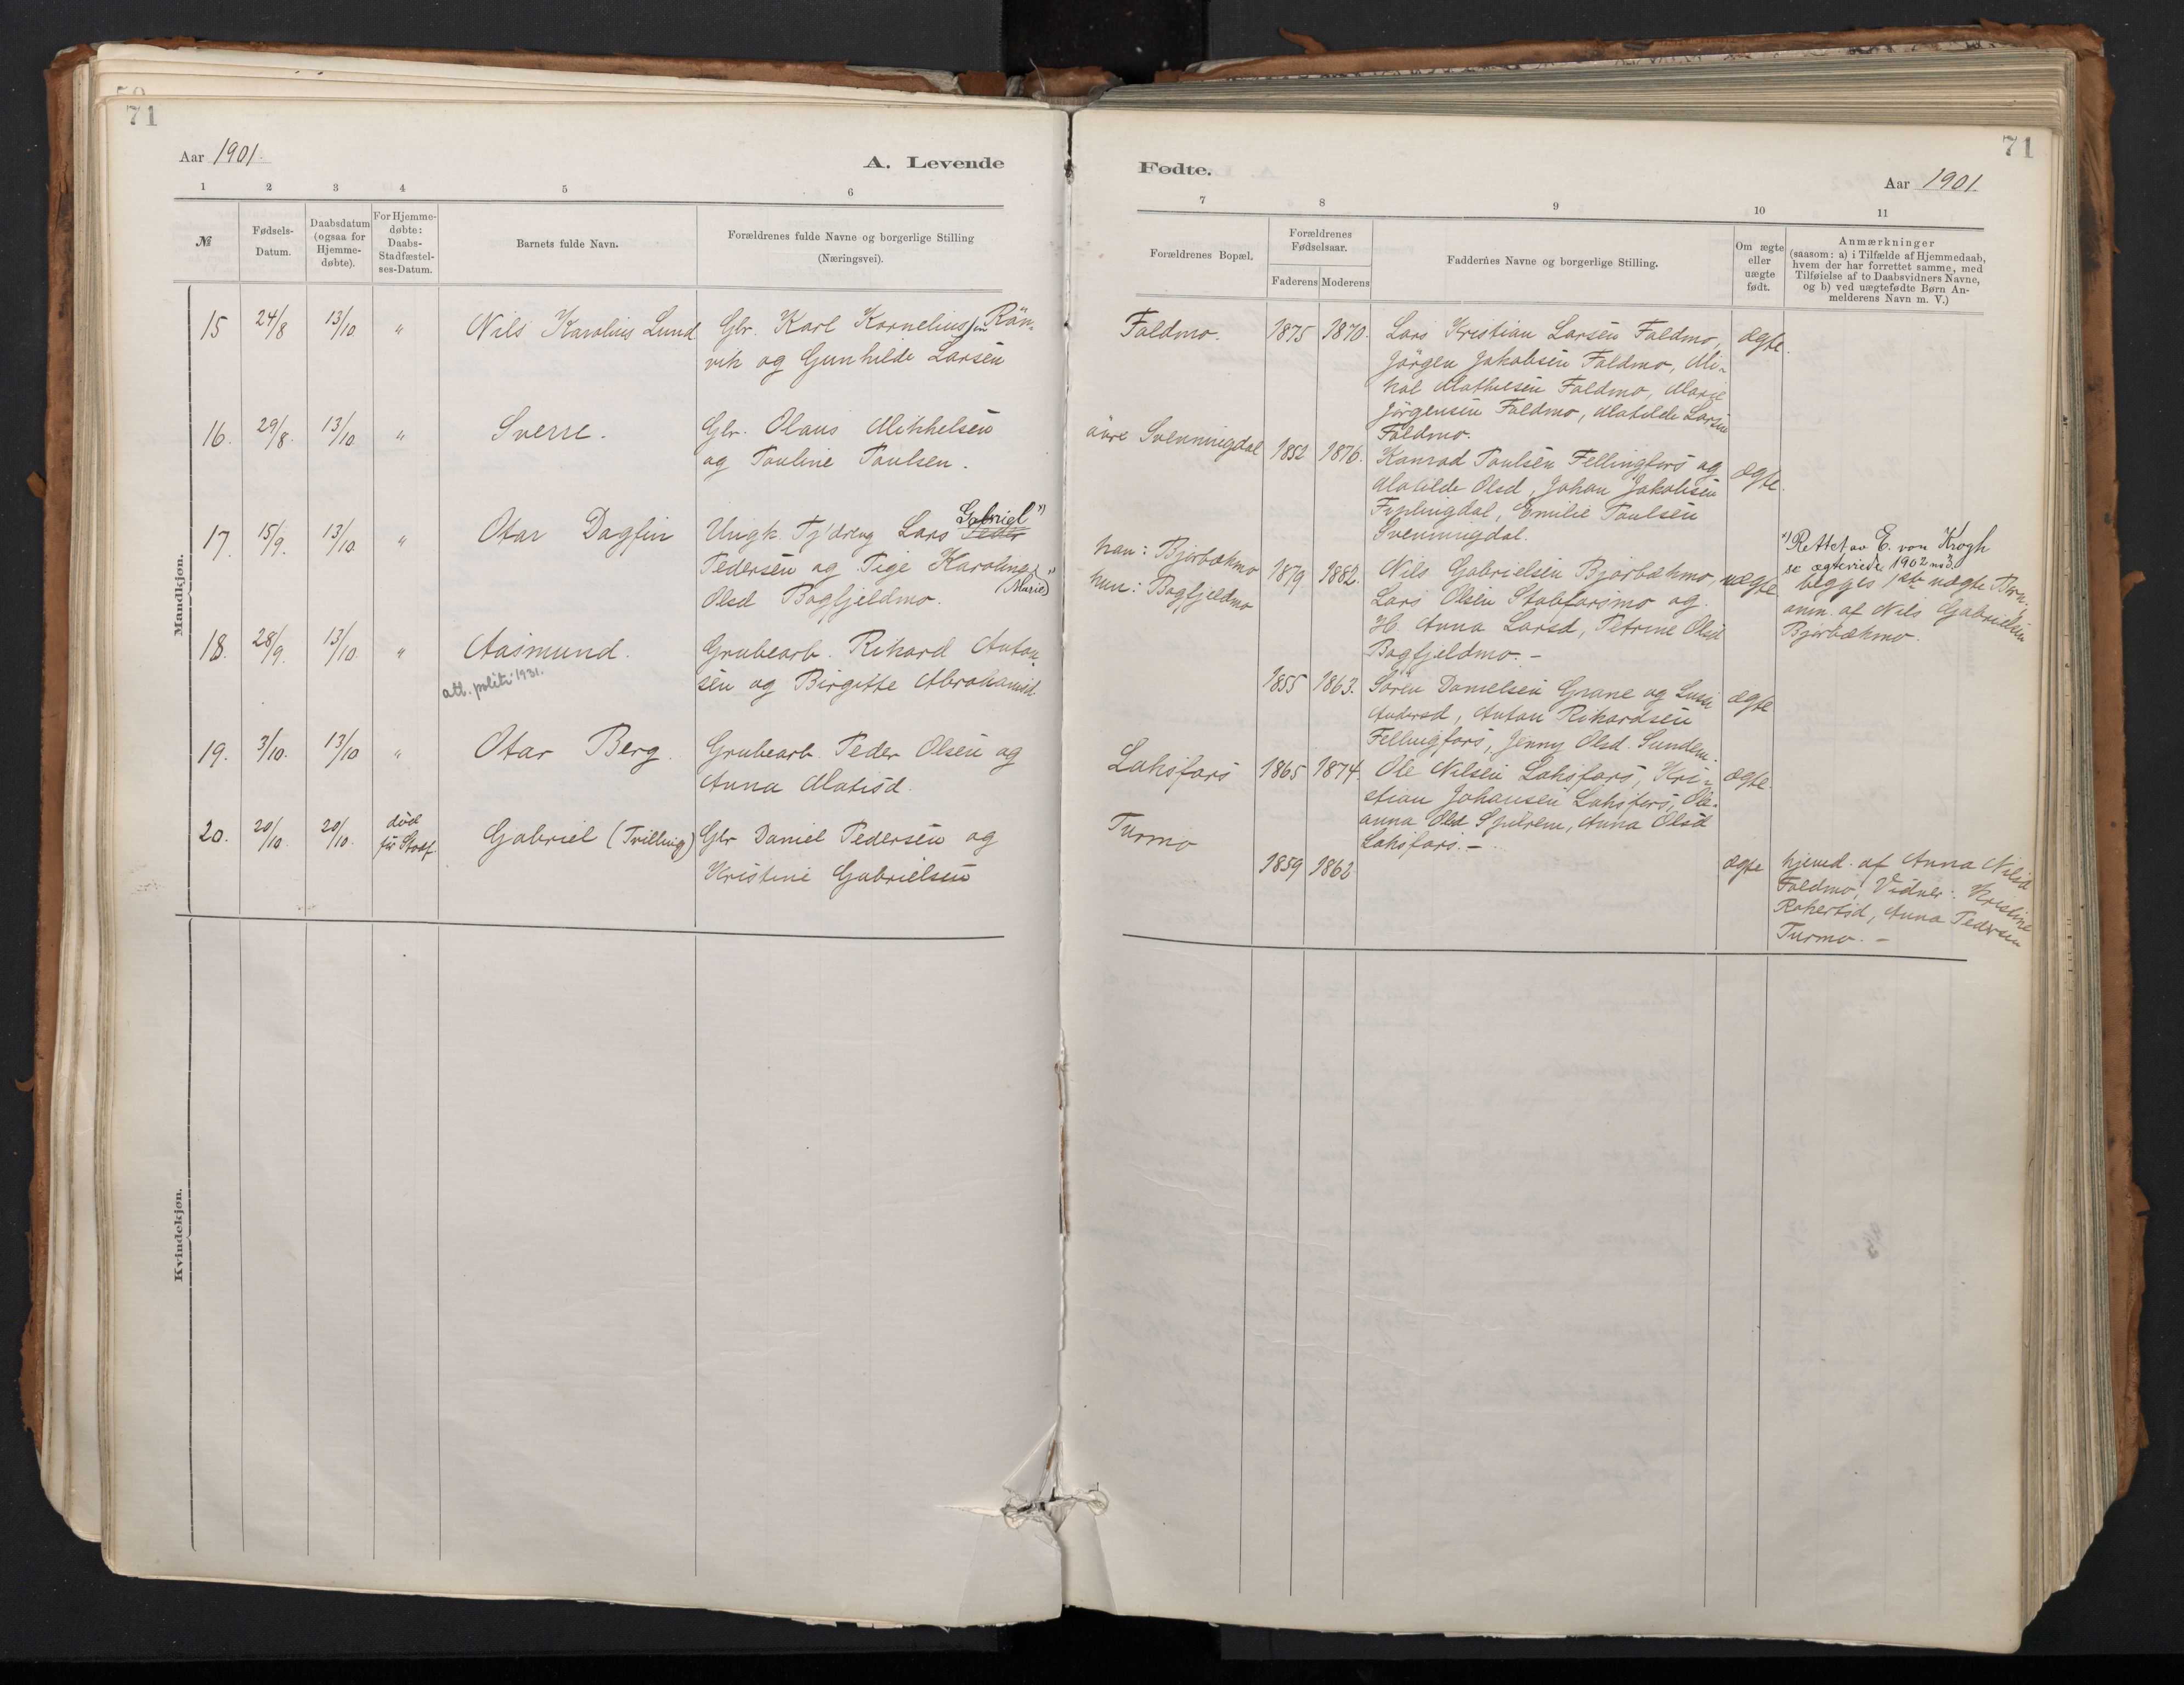 71
Aar 1901.
A. Levende
1 2 3 4 5 6
№
Fødsels-
Datum.
Daabsdatum
(ogsaa for
Hjemme-
døbte).
For Hjemme-
døbte:
Daabs-
Stadfæstel-
ses-Datum.
Barnets fulde Navn.
Forældrenes fulde Navne og borgerlige Stilling
(Næringsvei).
Mandkjøn.
15 24/8 13/10 " Nils Karolius Lund Gbr. Karl Kornelius Røn-
vik og Gunhilde Larsen
16. 29/8. 13/10 " Sverre. Gbr. Olaus Mikkelsen
og Pauline Paulsen.
Gabriel ")
17. 15/9. 13/10 " Otar Dagfin Ungk. Lars Peder
Pedersen og Pige Karoline
Olsd Bagfjeldmo. (Marie)
18. 28/9. 13/10 " Aasmund. Grubearb. Rikard Anton-
sen og Birgitte Abrahamsd
att. politi 1931.
19. 3/10. 13/10 " Otar Berg. Grubearb. Peder Olsen og
Anna Matisd.
20. 20/10. 20/10. død
før Stadf. Gabriel (Trilling) Gbr Daniel Pedersen og
Kristine Gabrielsen
Kvindekjøn.
71
Fødte.
Aar 1901.
7 8 9 10 11
Forældrenes Bopæl.
Forældrenes
Fødselsaar.
Faderens Moderens
Faddernes Navne og borgerlige Stilling.
Om ægte
eller
uægte
født.
Anmærkninger
(saasom: a) i Tilfælde af Hjemmedaab,
hvem der har forrettet samme, med
Tilføielse af to Daabsvidners Navne,
og b) ved uægtefødte Børn An-
melderens Navn m. V.)
Faldmo. 1875 1870. Lars Kristian Larsen Faldmo, ægte.
Jörgen Jakobsen Faldmo, Mi-
kal Mathisen Faldmo, Marie
Jörgensen Faldmo, Matilde Larsen
Faldmo.
övre Svenningdal 1852 1876. Konrad Paulsen Fellingfors og ægte.
Matilde Olsd, Johan Jakobsen
Fiplingdal, Emilie Paulsen
Svenningdal.
han: Bjorbækmo
hun: Bagfjeldmo
1879 1882. Nils Gabrielsen Bjorbækmo, uægte
Lars Olsen Stabforsmo og
H. Anna Larsd, Petrine Olsd
Bagfjeldmo. -
") Rettet av E. von Krogh
se ægteviede 1902 no 3.
begges 1ste uægte Barn.
anm. af Nils Gabrielsen
Bjorbækmo.
1855 1863. Sören Danielsen Grane og
Andersd, Anton Rikardsen ægte
Fellingfors, Jenny Olsd. Sundem.
Laksfors 1865 1874. Ole Nilsen Laksfors, Kri- ægte.
stian Johansen Laksfors, Ole-
anna Olsd, Anna Olsd
Laksfors. -
Turmo
1859 1862 ægte hjemd. af Anna Nilsd
Faldmo, Vidner: Kristine
Rakersd, Anna Pedersen
Turmo. -